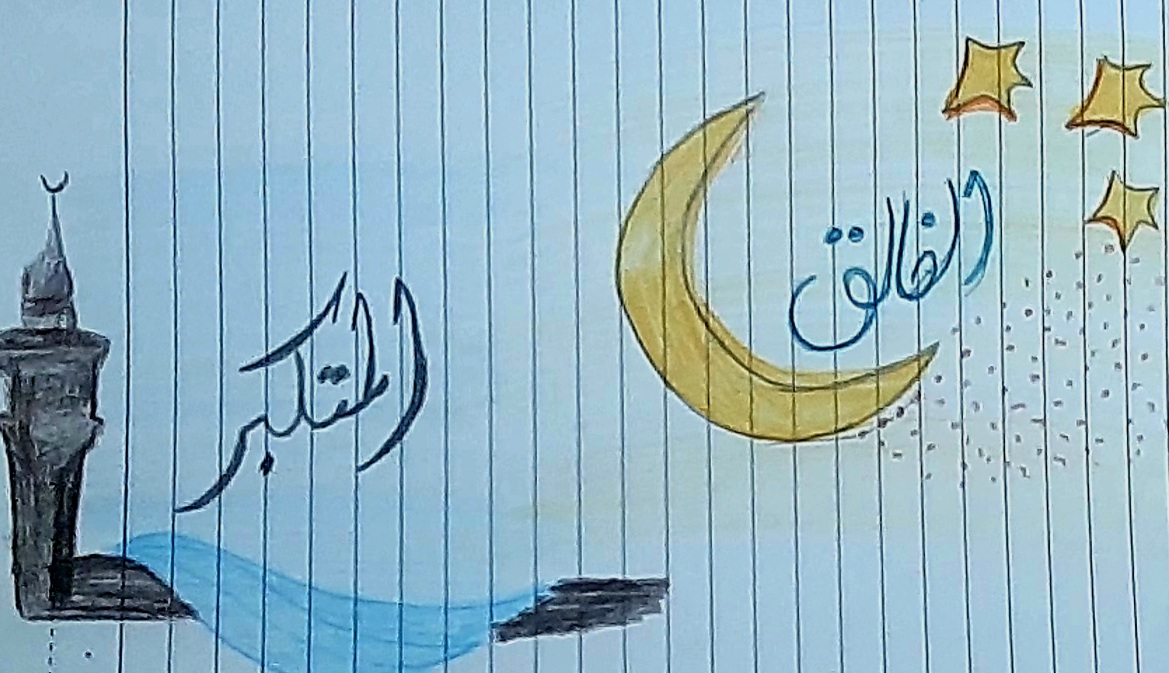 الفالق
المتكبر